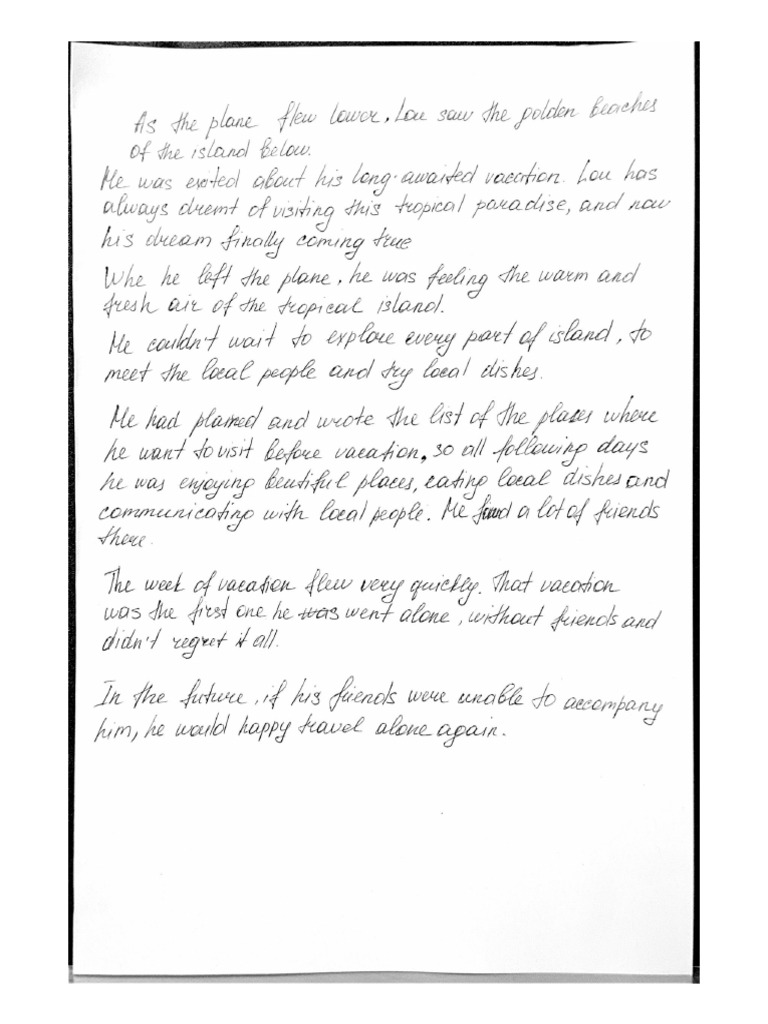 As the plane flew lower, Lou saw the golden beaches
of the island below.
He was exited about his long-awaited vacation. Lou has
always dremt of visiting this tropical paradise, and now
his dream finally coming true
Whe he left the plane, he was feeling the warm and
fresh air of the tropical island.
He couldn't wait to explore every part of island, to
meet the local people and try local dishes.
He had planned and wrote the list of the places where
he want to visit before vacation, so all following days
he was enjoying beautiful places, eating local dishes and
communicating with local people. He found a lot of friends
there.
The week of vacation flew very quickly. That vacation
was the first one he was went alone, without friends and
didn't regret it all.
In the future, if his friends were unable to accompany
him, he would happy travel alone again.